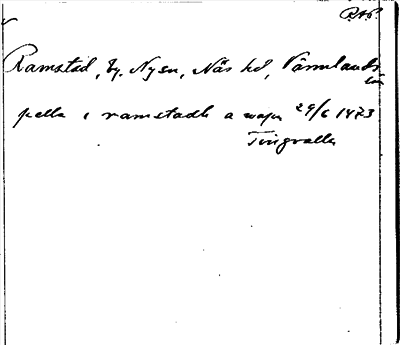 R.A.P.
Ramstad, by. Nysu, Näs hd, Värmlands
län
pella i ramstadh a 29/6 1473
Tingvalla